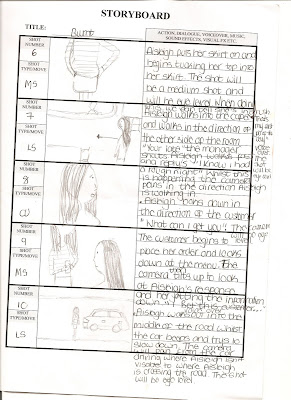 STORYBOARD
TITLE:
Runt
ACTION, DIALOGUE, VOICEOVER, MUSIC,
SOUND EFFECTS, VISUAL FX ETC
SHOT
NUMBER
6
SHOT
TYPE/MOVE
MS
Aisleigh puts her shirt on and
begins tucking her top into
her skirt. The shot will
be a medium shot and
will be eye level when doing
SHOT
NUMBER
7
SHOT
TYPE/MOVE
LS
Aisleigh walks in the
and walks in the direction of
the other side of the room.
"Your late" the manager
shouts Aisleigh walks past
and replys "I know I had
a rough night" Whilst this
is happening the camera
SHOT
NUMBER
8
SHOT
TYPE/MOVE
CU
pans in the direction Aisleigh
is walking in.
Aisleigh bends down in
the direction of the customer
"What can I get you?" The camera
SHOT
NUMBER
9
SHOT
TYPE/MOVE
MS
The customer begins to
place her order and looks
down at the menu. The
camera tilts up to look
at Aisleigh's response
and her jotting the information
down
SHOT
NUMBER
10
SHOT
TYPE/MOVE
LS
Aisleigh walks out into the
middle of the road whilst
the car beeps and trys to
slow down. The camera
driving where Aisleigh isn't
visable to where Aisleigh
is crossing the road. The
will be eye level